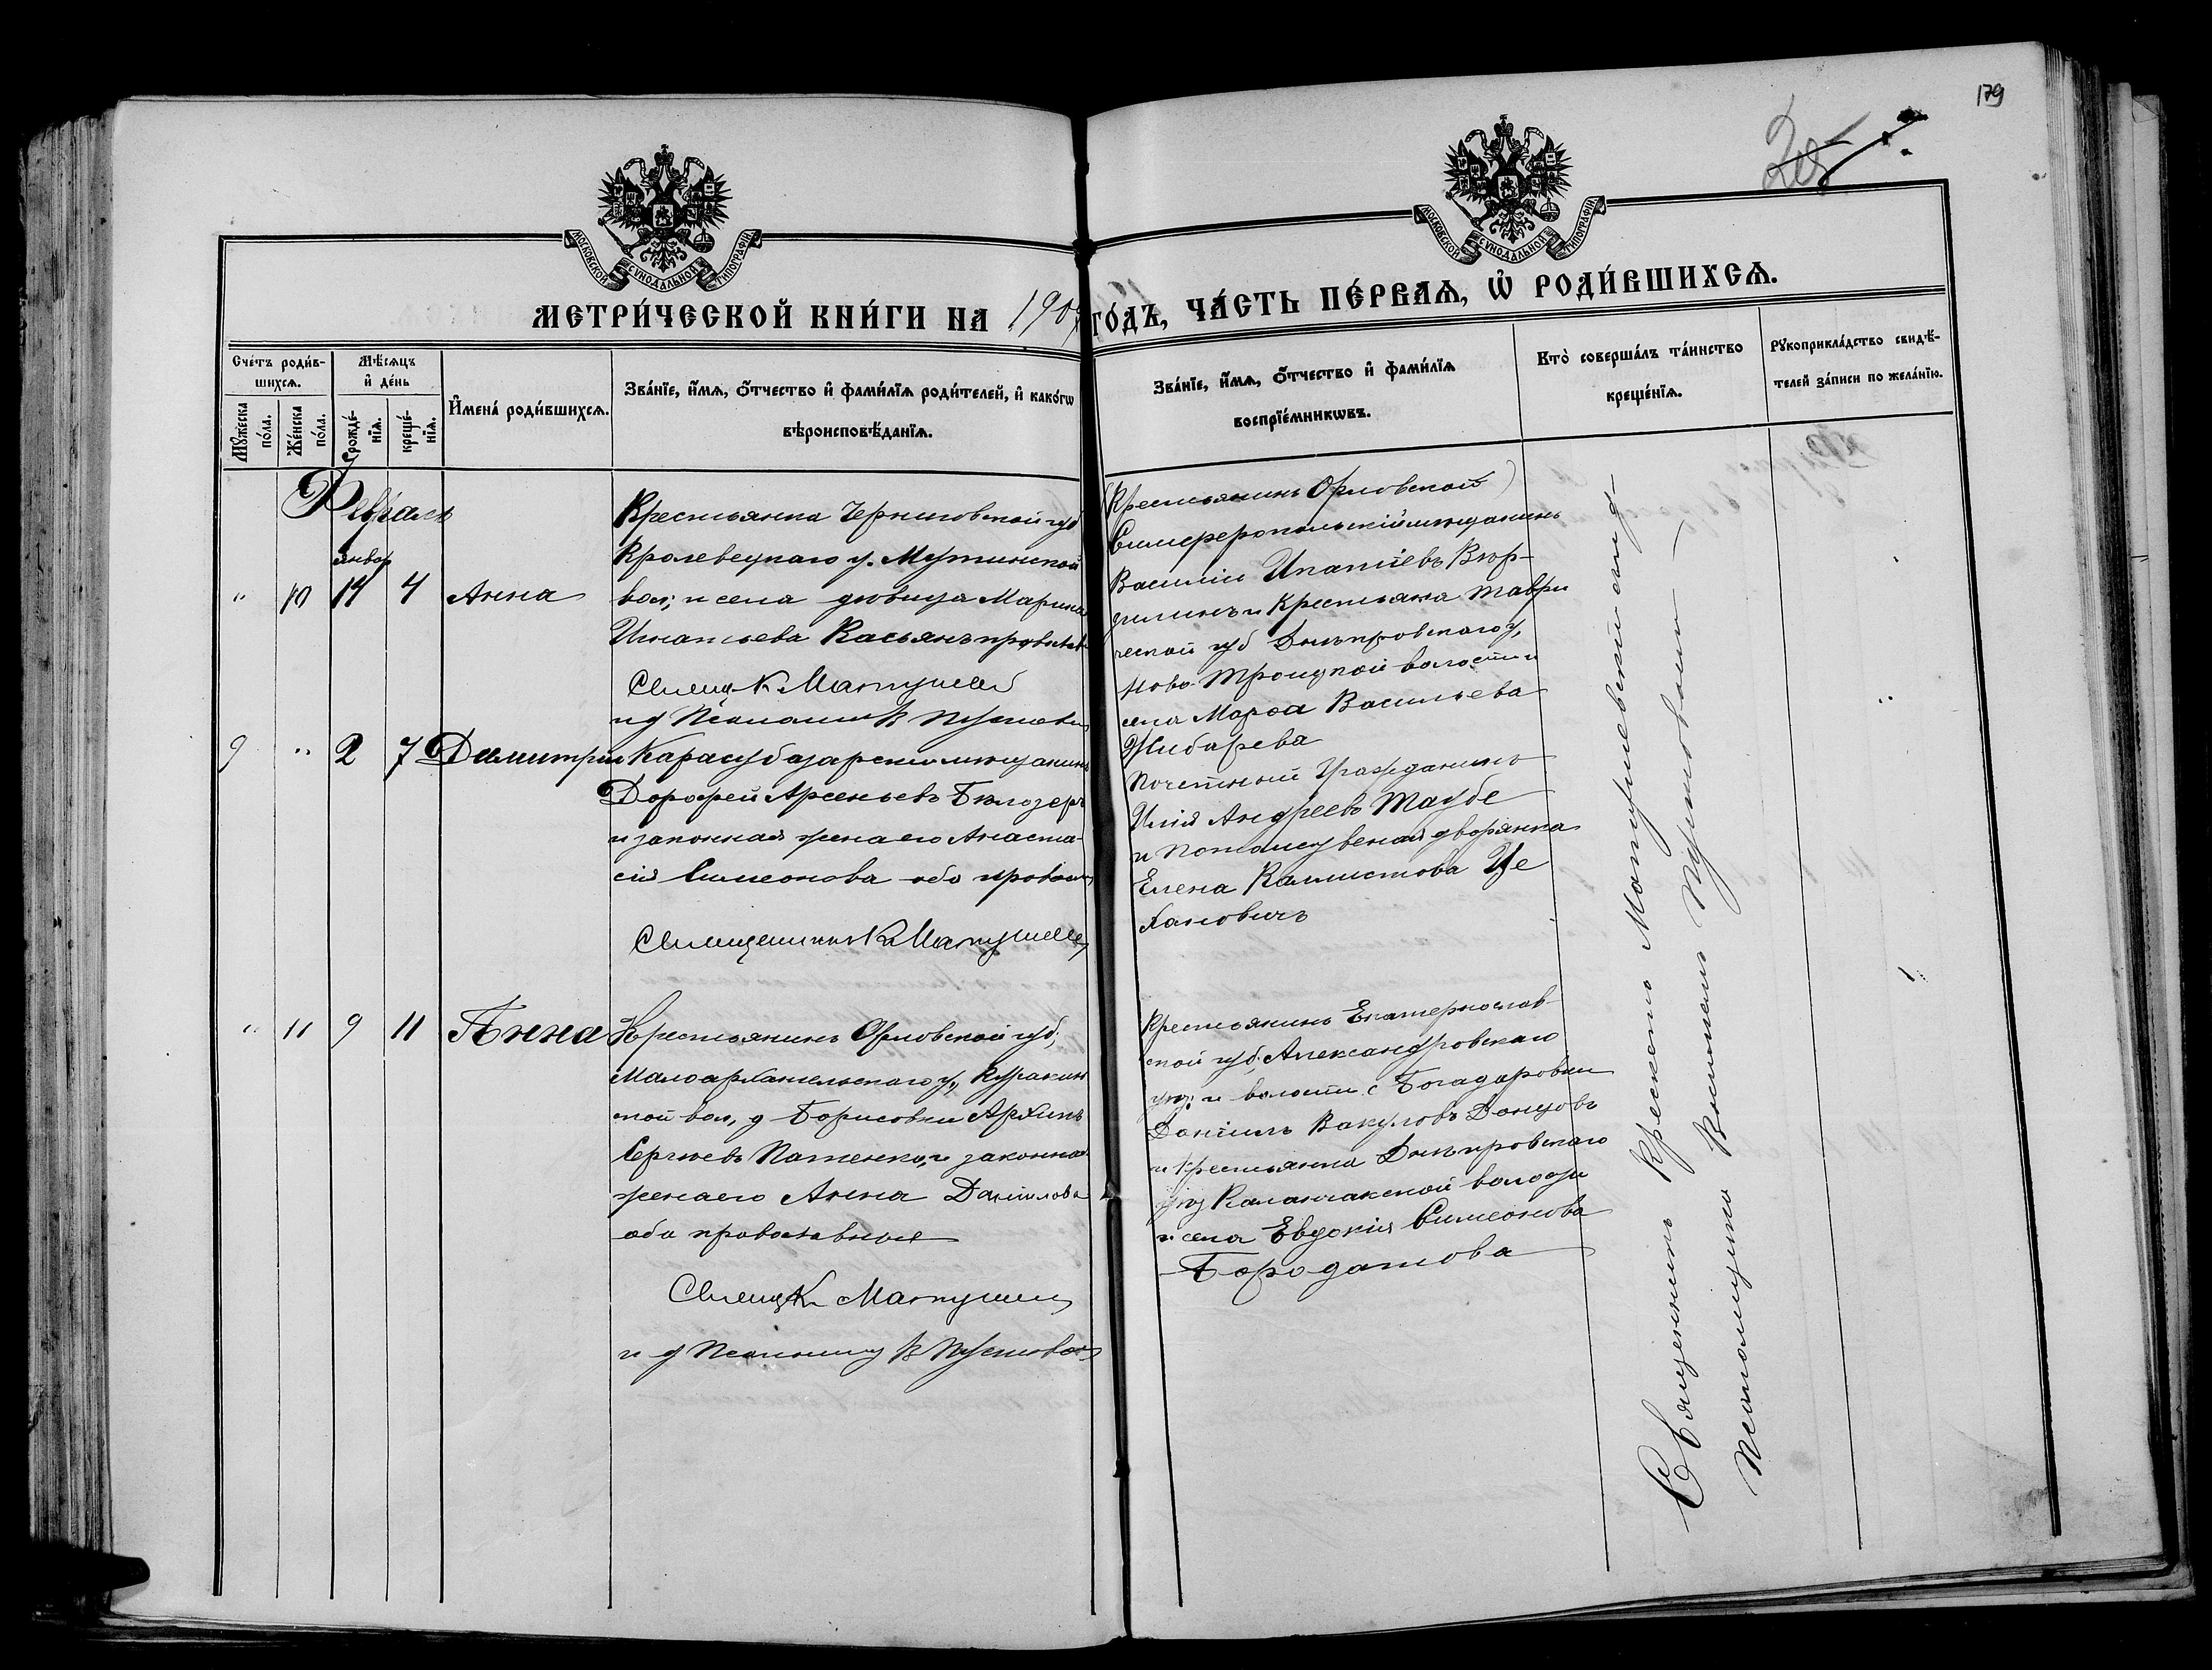 179
МОСКОВСКОЙ СѴНОДАЛЬНОЙ ТИПОГРАФІИ
МОСКОВСКОЙ СѴНОДАЛЬНОЙ ТИПОГРАФІИ
МЕТРИ́ЧЕСКОЙ КНИ́ГИ НА 190
ГО́ДЪ, ЧА́СТЬ ПЕ́РВАЯ, Ѡ҆ РОДИ́ВШИХСЯ.
Сче́тъ роди́в-
шихся.
Мѣ́сяцъ
и҆ де́нь
Му́жеска по́ла.
Же́нска по́ла.
рожде́-
нїя.
креще́-
нїя.
И҆мена́ роди́вшихся.
Зва́нїе, и҆́мя, ѻ҆́тчество и҆ фами́лїя роди́телей, и҆ како́гѡ
вѣроисповѣ́данїя.
Зва́нїе, и҆́мя, ѻ҆́тчество и҆ фами́лїя
воспрїе́мникѡвъ.
Кто̀ соверша́лъ та́инство
креще́нїя.
Рукоприкла́дство свидѣ́-
телей за́писи по жела́нїю.
Февраль
январ
" 10 14 4 Анна
Крестьянка Черниговской губ
Кролевецкаго у. Мутинской
вол; и села девица Марина
Игнатьева Касьян православ
Свящ К. Матушев
и д Псаломщ В
(Крестьянинъ Орловской)
Симферопольскій мѣщанинъ
Василий Ипатіевъ
и Крестьянка Таври
ческой губ Днѣпровскаго у,
Ново-Троицкой волости и
села Марфа Васильева
Жибарева
9 " 2 7 Димитрий
Карасубазарский мѣщанинъ
Дорофей Арсеньевъ Бѣлозеръ
и законная жена его Анаста-
сія Симеонова оба правосл
Священникъ К Матушев
Почетный Гражданинъ
Илія Андреевъ Таубе
и потомственая дворянка
Елена Каллистова Це
хановичъ
" 11 9 11 Анна
Крестьянинъ Орловской губ,
Малоархангельскаго у, Куракин
ской вол, д Борисовки Архипъ
Сергѣевъ и законная
жена его Анна Даніилова
оба православные
Свящ К Матушев
и д Псаломщ В
Крестьянинъ Екатеринослав
ской губ, Александровскаго
уѣз; и волости с Богадаровки
Даніилъ Вакуловъ Донцовъ
и крестьянка Днѣпровскаго
уѣз Каланчакской волости
и села Евдокія Симеонова
Бородатова
Священникъ
Псаломщика